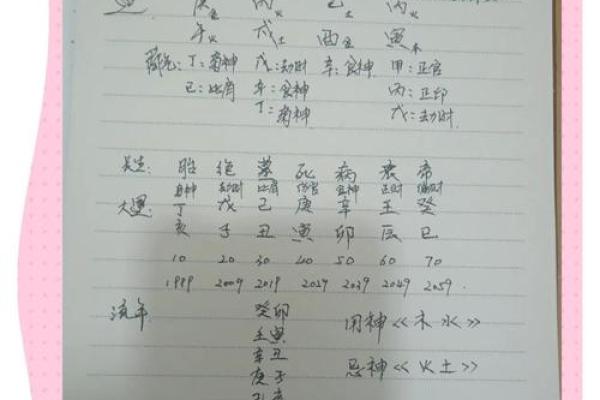 庚金 丙火 己土 丙火
午火 戌土 酉金 寅木
藏元: 丁:枭神 戊:劫财 辛:食神 甲:正官
己:比肩 辛:食神 丙:正印
丁:枭神 戊:劫财
长生: 胎 绝 墓 死 病 衰 帝
枭神 劫财 比肩 伤官 食神 正财 偏财
大運: 丁 戊 己 庚 辛 壬 癸
亥 子 丑 寅 卯 辰 巳
10 20 30 40 50 60 70
1999 2009 2019 2029 2039 2049 2059.
流年 癸卯 用神<<木水>>
壬寅
辛丑 忌神<<火土>>
庚子